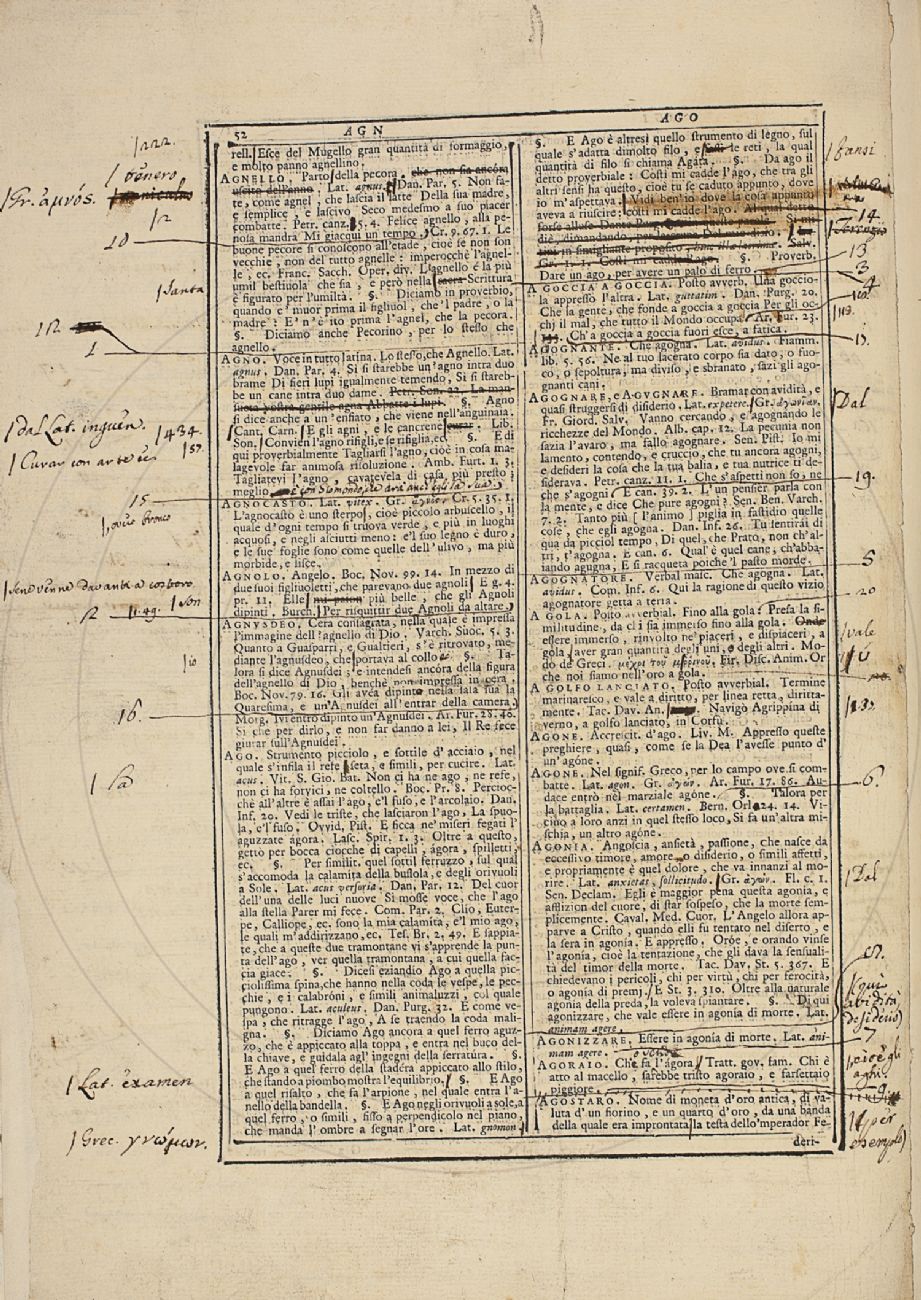 52 AGN
AGO
rell. Esce del Mugello gran quantità di formaggio,
e molto panno agnellino.
AGNELLO. Parto della pecora, che non sia ancóra
uscito dell'anno. Lat. agnus. Dan. Par. 5. Non fa-
te, come agnel, che lascia il latte Della sua madre,
e semplice, e lascivo Seco medesmo a suo piacer
combatte. Petr. canz. 5. 4. Felice agnello, alla pe-
nosa mandra Mi giacqui un tempo. Cr. 9. 67. 1. Le
buone pecore si conoscono all'etade, cioè se non son
vecchie, non del tutto agnelle: imperocchè l'agnel-
le, ec. Franc. Sacch. Oper. div. L'agnello è la più
umil bestiuola che sia, e però nella sacra Scrittura
è figurato per l'umiltà. §. Diciamo in proverbio,
quando e' muor prima il figliuol, che 'l padre, o la
madre: E' n'è ito prima l'agnel, che la pecora.
§. Diciamo anche Pecorino, per lo stesso che
agnello.
AGNO. Voce in tutto latina. Lo stesso, che Agnello. Lat.
agnus. Dan. Par. 4. Sì si starebbe un'agno intra duo
brame Di fieri lupi igualmente temendo, Sì si stareb-
be un cane intra duo dame. Petr. Son. 22. La man-
sueta vostra gentile agna Abbatte i lupi. §. Agno
si dice anche a un'enfiato, che viene nell'anguinaia.
Cant. Carn. E gli agni, e le cancrene curar. Lib.
Son. Convien l'agno rifigli, e se rifiglia, ec. §. E di
qui proverbialmente Tagliarsi l'agno, cioè in cosa ma-
lagevole far animosa risoluzione. Amb. Furt. 1. 3.
Tagliatevi l'agno, cavatevela di casa più presto;
meglio
AGNOCASTO. Lat. vitex. Gr. ἄγνος Cr. 5. 35. 1.
L'agnocasto è uno sterpo, cioè piccolo arbuscello, il
quale d'ogni tempo si truova verde, e più in luoghi
acquosi, e negli asciutti meno: e 'l suo legno è duro,
e le sue foglie sono come quelle dell'ulivo, ma più
morbide, e lisce.
AGNOLO. Angelo. Boc. Nov. 99. 14. In mezzo di
due suoi figliuoletti, che parevano due agnoli. E g. 4.
pr. 11. Elle mi paion più belle, che gli Agnoli
dipinti. Burch. Per risquitir due Agnoli da altare.
AGNUSDEO. Cera consagrata, nella quale è impressa
l'immagine dell'agnello di Dio. Varch. Suoc. 5. 3.
Quanto a Guasparri, e Gualtieri, s'è ritrovato, me-
diante l'agnusdeo, che portava al collo ec. §. Ta-
lora si dice Agnusdei; e intendesi ancóra della figura
dell'agnello di Dio, benchè non impressa in cera.
Boc. Nov. 79. 16. Gli avea dipinto nella sala sua la
Quaresima, e un'Agnusdei all'entrar della camera.
Morg. Ivi entro dipinto un'Agnusdei. Ar. Fur. 28. 40.
Sì che per dirlo, e non far danno a lei, Il Re fece
giurar sull'Agnusdei.
AGO. Strumento picciolo, e sottile d'acciaio, nel
quale s'infila il refe, seta, e simili, per cucire. Lat.
acus. Vit. S. Gio. Bat. Non ci ha ne ago, ne refe,
non ci ha forvici, ne coltello. Boc. Pr. 8. Percioc-
chè all'altre è assai l'ago, e 'l fuso, e l'arcolaio. Dan.
Inf. 20. Vedi le triste, che lasciaron l'ago, La spuo-
la, e 'l fuso. Ovvid. Pist. E ficca ne' miseri fegati l'
aguzzate ágora. Lasc. Spir. 1. 3. Oltre a questo,
getto per bocca ciocche di capelli, ágora, spilletti,
ec. §. Per similit. quel sottil ferruzzo, sul qual
s'accomoda la calamita della bussola, e degli orivuoli
a Sole. Lat. acus versoria. Dan. Par. 12. Del cuor
dell'una delle luci nuove Si mosse voce, che l'ago
alla stella Parer mi fece. Com. Par. 2. Clio, Euter-
pe, Calliope, ec. sono la mia calamita, e 'l mio ago,
le quali m'addirizzano, ec. Tes. Br. 2. 49. E sappia-
te, che a queste due tramontane vi s'apprende la pun-
ta dell'ago, ver quella tramontana, a cui quella fac-
cia giace. §. Dicesi eziandio Ago a quella pic-
ciolissima spina, che hanno nella coda le vespe, le pec-
chie, e i calabróni, e simili animaluzzi, col quale
pungono. Lat. aculeus. Dan. Purg. 32. E come ve-
spa, che ritragge l'ago, A se traendo la coda mali-
gna. §. Diciamo Ago ancora a quel ferro aguz-
zo, che è appiccato alla toppa, e entra nel buco del-
la chiave, e guidala agl'ingegni della serratura. §.
E Ago a quel ferro della stadéra appiccato allo stilo,
che stando a piombo mostra l'equilibrio. §. E Ago
a quel risalto, che fa l'arpione, nel quale entra l'a-
nello della bandella. §. E Ago negli orivuoli a sole, a
quel ferro, o simili, fisso a perpendicolo nel piano,
che manda l'ombre a segnar l'ore. Lat. gnomon.
§. E Ago è altresì quello strumento di legno, sul
quale s'adatta dimolto filo, e fassi le reti, la qual
quantità di filo si chiama Agáta. §. Da ago il
detto proverbiale: Costì mi cadde l'ago, che tra gli
altri sensi ha questo, cioè tu se' caduto appunto, dove
io m'aspettava. Vidi ben'io dove la cosa appunto
aveva a riuscire: costì mi cadde l'ago.
Gr. 1. 1. Costì mi cadde l'ago. §. Proverb.
Dare un ago, per avere un palo di ferro.
A GOCCIA A GOCCIA. Posto avverb. Una goccio-
la appresso l'altra. Lat. guttatim. Dan. Purg. 20.
Che la gente, che fonde a goccia a goccia Per gli oc-
chj il mal, che tutto il Mondo occupa. Ar. Fur. 23.
Ch'a goccia a goccia fuori esce, a fatica.
AGOGNANTE. Che agogna. Lat. avidus. Fiamm.
lib. 5. 56. Ne al tuo lacerato corpo sia dato, o fuo-
co, o sepoltura, ma diviso, e sbranato, sazj gli ago-
gnanti cani.
AGOGNARE, e AGUGNARE. Bramar con avidità, e
quasi struggersi di disiderio. Lat. expetere. Gr.
Fr. Giord. Salv. Vanno cercando, e agognando le
ricchezze del Mondo. Alb. cap. 12. La pecunia non
sazia l'avaro, ma fallo agognare. Sen. Pist. Io mi
lamento, contendo, e cruccio, che tu ancora agogni,
e desideri la cosa che la tua balia, e tua nutrice ti de-
siderava. Petr. canz. 11. 1. Che s'aspetti non so, ne
che s'agogni. E can. 39. 2. L'un pensier parla con
la mente, e dice Che pure agogni? Sen. Ben. Varch.
7. 2. Tanto più [l'animo] piglia in fastidio quelle
cose, che egli agogna. Dan. Inf. 26. Tu sentirai di
qua da picciol tempo, Di quel, che Prato, non ch'al-
tri, t'agogna. E can. 6. Qual'è quel cane, ch'abba-
iando agugna, E si racqueta poiche 'l pasto morde.
AGOGNATORE. Verbal masc. Che agogna. Lat.
avidus. Com. Inf. 6. Qui la ragione di questo vizio
agognatore getta a terra.
A GOLA. Posto avverbial. Fino alla gola. Presa la si-
militudine, da ci si sia immerso fino alla gola. Onde
essere immerso, rinvolto ne' piaceri, e dispiaceri, a
gola, aver gran quantità degli uni, o degli altri. Mo-
do de' Greci. Fir. Disc. Anim. Or
che noi siamo nell'oro a gola.
A GOLFO LANCIATO. Posto avverbial. Termine
marinaresco, e vale a diritto, per linea retta, diritta-
mente. Tac. Dav. An. Navigò Agrippina di
verno, a golfo lanciato, in Corfù.
AGONE. Accrescit. d'ago. Liv. M. Appresso queste
preghiere, quasi, come se la Dea l'avesse punto d'
un'agóne.
AGONE. Nel signif. Greco, per lo campo ove si com-
batte. Lat. agon. Gr. ἀγών. Ar. Fur. 17. 86. Au-
dace entrò nel marziale agóne. §. Talora per
la battaglia. Lat. certamen. Bern. Orl. 24. 14. Vi-
cino a loro anzi in quel stesso loco, Si fa un'altra mi-
schia, un altro agóne.
AGONIA. Angoscia, ansietà, passione, che nasce da
eccessivo timore, amore, o disiderio, o simili affetti,
e propriamente è quel dolore, che va innanzi al mo-
rire. Lat. anxietas, sollicitudo. Gr. ἀγών. Fl. c. 1.
Sen. Declam. Egli è maggior pena questa agonia, e
affizion del cuore, di star sospeso, che la morte sem-
plicemente. Caval. Med. Cuor. L'Angelo allora ap-
parve a Cristo, quando elli fu tentato nel diserto, e
la sera in agonía. E appresso. Oróe, e orando vinse
l'agonía, cioè la tentazione, che gli dava la sensuali-
tà del timor della morte. Tac. Dav. St. 5. 367. E
chiedevano i pericoli, chi per virtù, chi per ferocità,
o agonía di premj. E St. 3. 310. Oltre alla naturale
agonía della preda, la voleva spiantare. §. Di qui
agonizzare, che vale essere in agonía di morte. Lat.
animam agere.
AGONIZZARE. Essere in agonía di morte. Lat. ani-
mam agere.
AGORAIO. Che fa l'ágora. Tratt. gov. fam. Chi è
atto al macello, sarebbe tristo agoraio, e farsettaio
piggiore.
AGOSTARO. Nome di moneta d'oro antica, di va-
luta d'un fiorino, e un quarto d'oro, da una banda
della quale era improntata la testa dello'mperador Fe-
deri-
222.
tenero
Gr. ἀμνός.
12
10
santa
112
1
dal Lat. inguen.
434.
57.
Curar con arte
15
ovvero bronco
sene venne davante a costoro
12 49. son
io
16.
sa
Lat. examen
Grec. γνώμων.
fansi
14
13
3
4
113.
11.
Dal
19.
5
20
vale
113.
6.
Dal
8.
qui
abidità,
desiderio
7
cioè gli
aghi.
9.
per